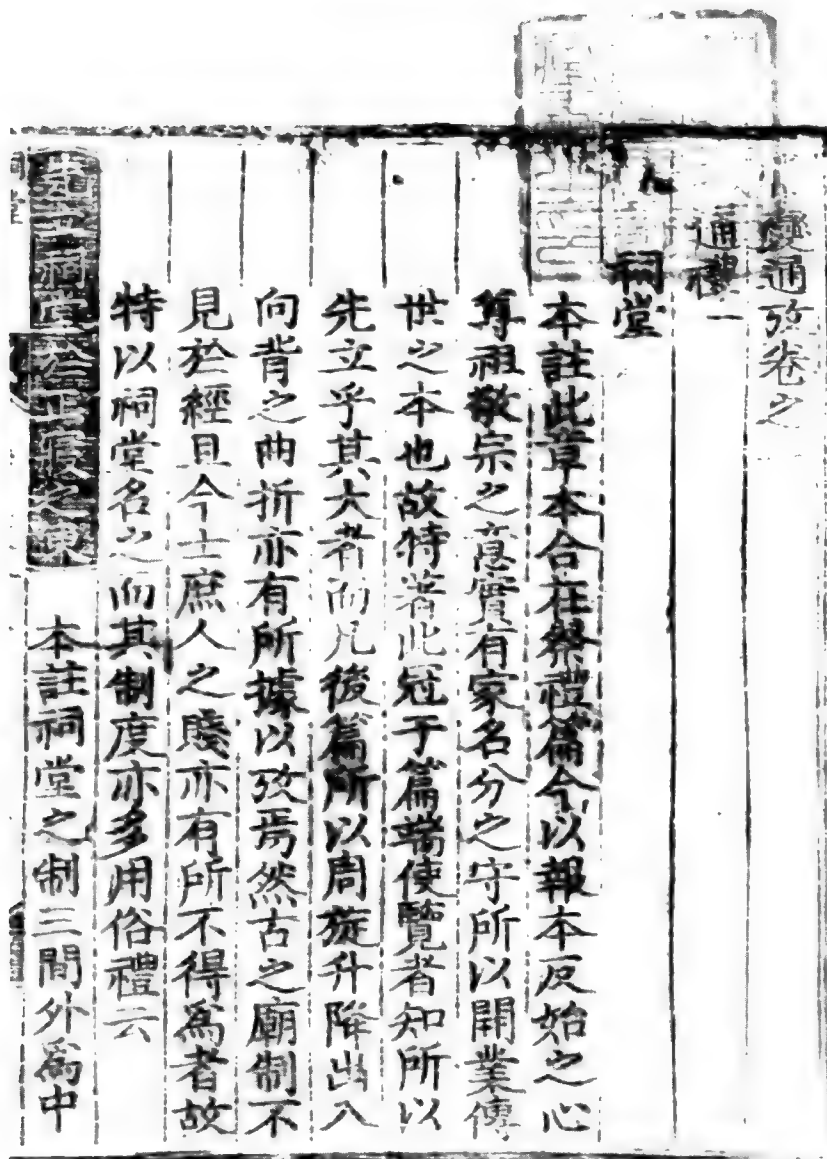 變通攷卷之
通禮一
祠堂
本註此章本合在祭禮篇今以報本反始之心
尊祖敬宗之意實有家名分之守所以開業傳
世之本也故特著此冠于篇端使覽者知所以
先立乎其大者而凡後篇所以周旋升降出入
向背之曲折亦有所據以攷焉然古之廟制不
見於經且今士庶人之賤亦有所不得爲者故
特以祠堂名之而其制度亦多用俗禮云
祠堂於正寢之東 本註祠堂之制三間外爲中